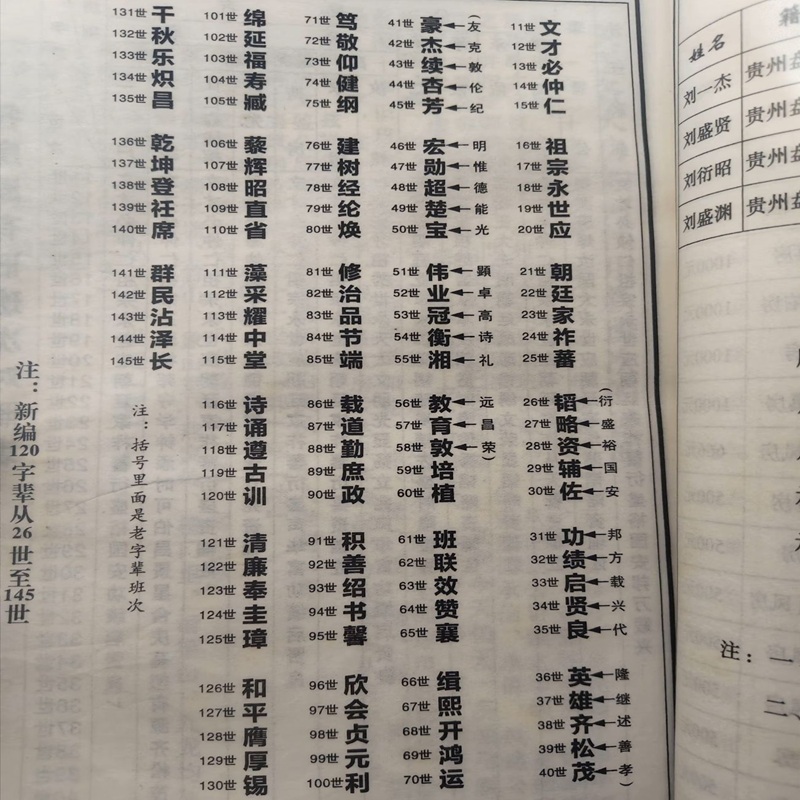 11世 文
12世 才
13世 必
14世 仲
15世 仁
16世 祖
17世 宗
18世 永
19世 世
20世 应
21世 朝
22世 廷
23世 家
24世 祚
25世 蕃
26世 韬←(衍
27世 略←盛
28世 资←裕
29世 辅←国
30世 佐←安
31世 功←邦
32世 绩←方
33世 启←载
34世 贤←兴
35世 良←代
36世 英←隆
37世 雄←继
38世 齐←述
39世 松←善
40世 茂←孝)
41世 豪←(友
42世 杰←克
43世 续←敦
44世 杏←伦
45世 芳←纪
46世 宏←明
47世 勋←惟
48世 超←德
49世 楚←能
50世 宝←光
51世 伟←顯
52世 业←卓
53世 冠←高
54世 衡←诗
55世 湘←礼
56世 教←远
57世 育←昌
58世 敦←荣)
59世 培
60世 植
61世 班
62世 联
63世 效
64世 赞
65世 襄
66世 缉
67世 熙
68世 开
69世 鸿
70世 运
71世 笃
72世 敬
73世 仰
74世 健
75世 纲
76世 建
77世 树
78世 经
79世 纶
80世 焕
81世 修
82世 治
83世 品
84世 节
85世 端
86世 载
87世 道
88世 勤
89世 庶
90世 政
91世 积
92世 善
93世 绍
94世 书
95世 馨
96世 欣
97世 会
98世 贞
99世 元
100世 利
101世 绵
102世 延
103世 福
104世 寿
105世 臧
106世 藜
107世 辉
108世 昭
109世 直
110世 省
111世 藻
112世 采
113世 耀
114世 中
115世 堂
116世 诗
117世 诵
118世 遵
119世 古
120世 训
121世 清
122世 廉
123世 奉
124世 圭
125世 璋
126世 和
127世 平
128世 膺
129世 厚
130世 锡
131世 干
132世 秋
133世 乐
134世 炽
135世 昌
136世 乾
137世 坤
138世 登
139世 衽
140世 席
141世 群
142世 民
143世 沾
144世 泽
145世 长
注：括号里面是老字辈班次
注：新编120字辈从26世至145世
姓名
刘一杰 贵州
刘盛贤 贵州
刘衍昭 贵州
刘盛渊 贵州
注：一
二、